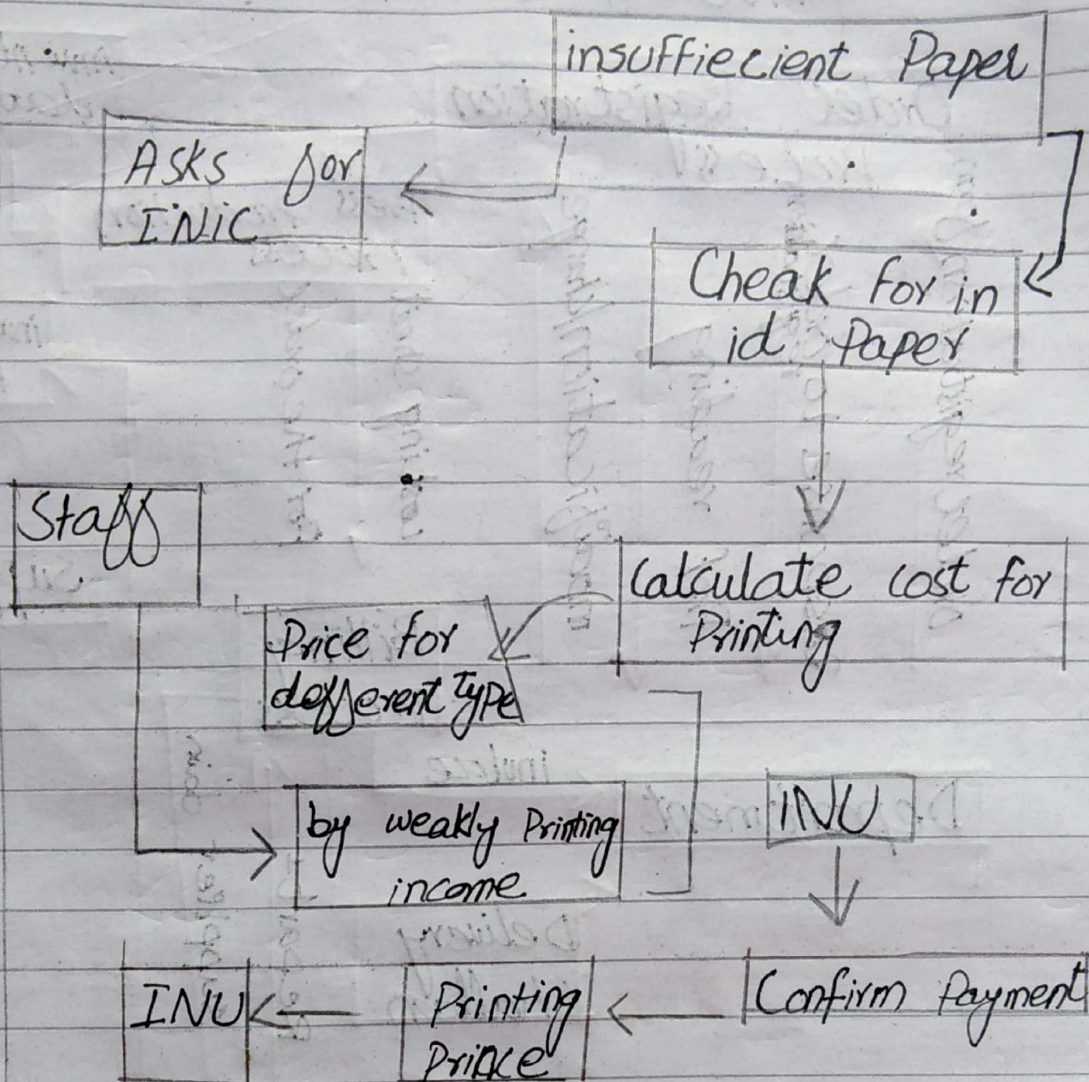 insuffiecient Paper
Asks for
INIC
Cheak for in
id Paper
Staff
Calculate cost for
Printing
Price for
defferent Type
by weakly Printing
income
INU
Confirm Payment
Printing
Prince
INU